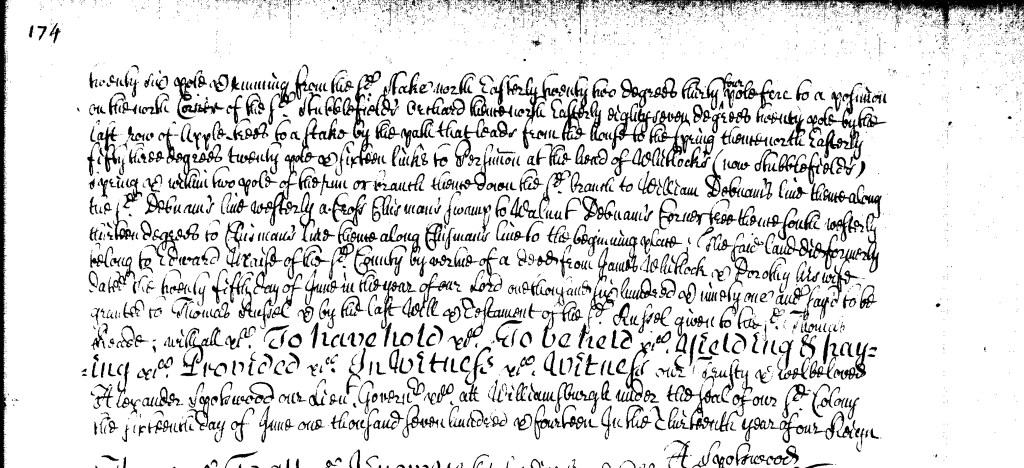 174
twenty six pole & running from the sd. Stake north Easterly twenty two degrees thirty four pole fere to a posimon
on the north Corner of the sd. Stubblefield's Orchard thence north Easterly eighty seven degrees twenty pole by the
last row of Apple trees to a stake by the path that leads from the house to the spring thence north Easterly
fifty three degrees twenty pole & sixteen links to Persimon at the head of Whitlock's (now Stubblefield's)
spring & within two pole of the run or branch thence down the sd. branch to William Debnam's line thence along
the sd. Debnam's line westerly a Cross Elisman's swamp to Walnut Debnam's Corner tree thence south westerly
thirteen degrees to Elisman's line thence along Elisman's line to the beginning place; The said land did formerly
belong to Edward of the sd. County by vertue of a deed from James Whitlock & Dorothy his wife
dated the twenty fifth day of June in the year of our Lord one thousand six hundred & ninety one and said to be
granted to Thomas Russel & by the last Will & Testament of the sd. Russel given to the sd. Thomas
Reade; with all &c. To have hold &c. To be held &c. Yielding & pay=
=ing &c. Provided &c. In Witness &c. Witness our Trusty & welbeloved
Alexander Spotswood our Lieut. Governr. &c. att Williamsburgh under the seal of our sd. Colony
the sixteenth day of June one thousand seven hundred & fourteen In the Thirteenth year of our Reign
A Spotswood